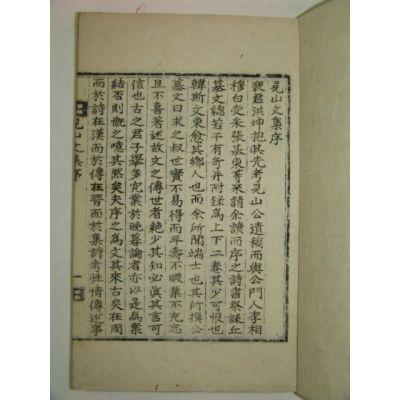 見山文集序
裵君洪坤抱其先考見山公遺稿而與公門人李相
穆白受朱張基東等來請余讀而序之詩書祭誄丘
墓文總若干有所序附錄爲上下二卷其少可恨也
韓斯文東愈其鄕人也而余所聞端士也其所撰公
墓文曰求之叔世實不易得而年壽不暇業不充志
且不喜著述故文之傳世者絶少其知必眞其言可
信也古之君子擧多究業於晩暮論者亦以是爲案
結否則槪之噫其然矣夫序之爲文其來古矣在周
而於詩在漢而於傳在晋而於集詩考性情傳述事
見山文集序
一